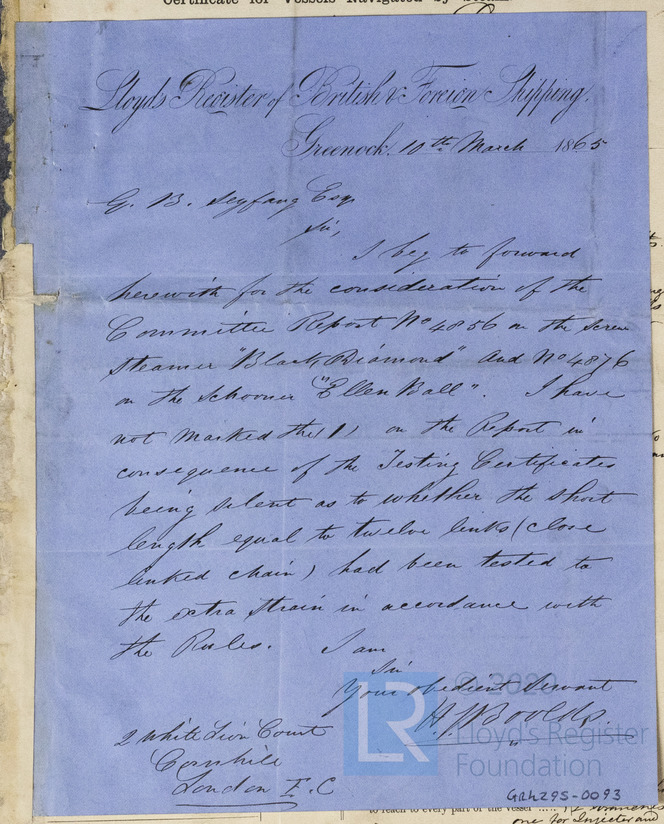 Certificate for Vessels Navigated by Steam
Lloyds Register of British & Foreign Shipping.
Greenock. 10th March 1865
G. B. Seyfang Esqr
Sir,
I beg to forward
herewith for the consideration of the
Committee Report No 4856 on the Screw
Steamer "Black Diamond" and No 4876
on the Schooner "Ellen Ball". I have
not marked the (1) on the Report in
consequence of the Testing Certificates
being silent as to whether the short
length equal to twelve links (close
linked chain) had been tested to
the extra strain in accordance with
the Rules. I am
Sir
Your obedient Servant
H. J. Boolds.
2 White Lion Court
Cornhill
London E.C
LR © 2020
Lloyd's Register
Foundation
GRK295-0093
to reach to every part of the vessel
one for Injector and